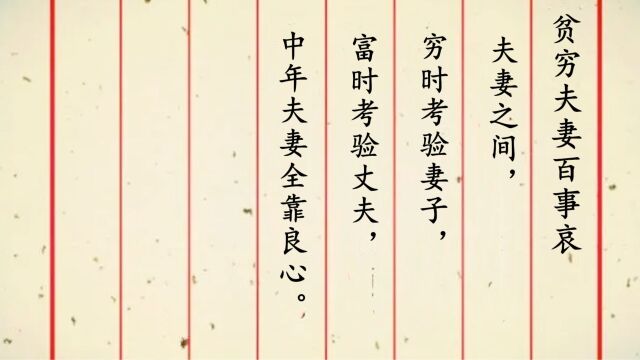 贫穷夫妻百事哀
夫妻之间，
穷时考验妻子，
富时考验丈夫，
中年夫妻全靠良心。